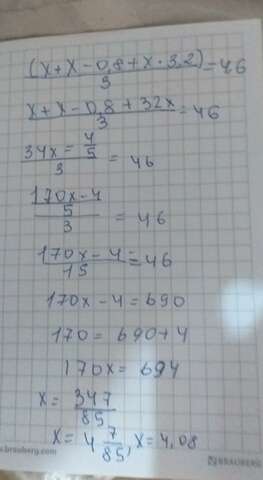 (x+x-0,8+x·3,2)/3=46
x+x-0,8+32x/3=46
34x=4/5/3=46
170x-4/5/3=46
170x-4/15=46
170x-4=690
170=690+4
170x=694
x=347/85
x=4 7/85, x=4,08
.brauberg.com
BRAUBERG